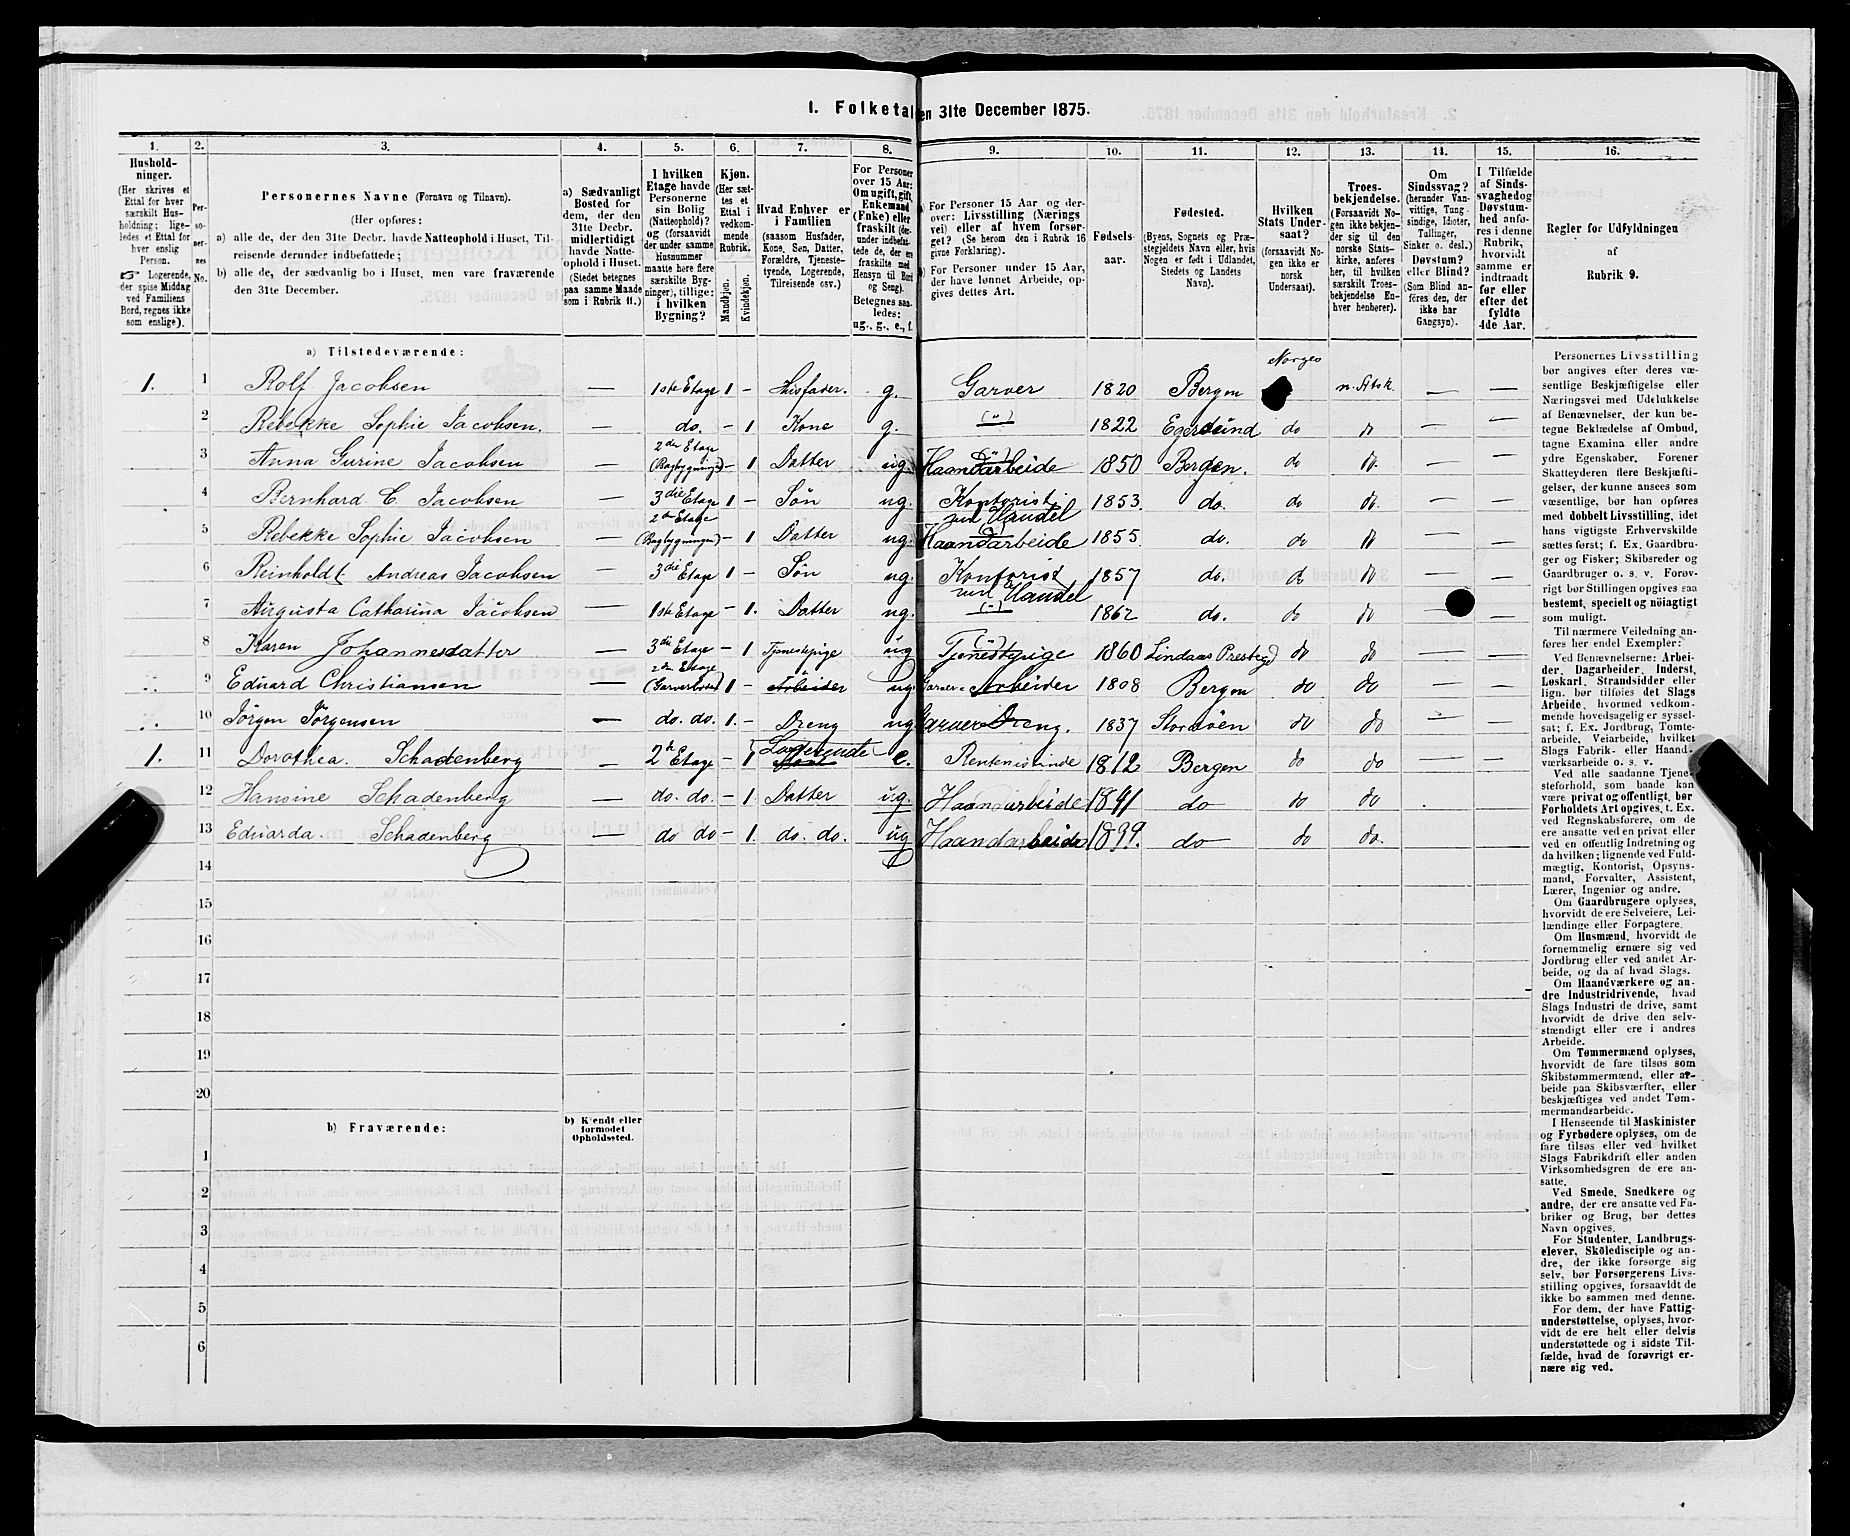 1. Folketal den 31te December 1875.
1. 2. 3. 4. 5. 6. 7. 8. 9. 10. 11. 12. 13. 14. 15. 16.
Hushold-
ninger.
(Her skrives et
Ettal for hver
særskilt Hus-
holdning; lige-
ledes et Ettal for
hver enslig
Person.
☞ Logerende,
der spise Middag
ved Familiens
Bord, regnes ikke
som enslige).
Per-
so-
ner-
nes
No.
Personernes Navne (Fornavn og Tilnavn).
(Her opføres:
a) alle de, der den 31te Decbr. havde Natteophold i Huset, Til-
reisende derunder indbefattede;
b) alle de, der sædvanlig bo i Huset, men vare fraværende
den 31te December.
a) Sædvanligt
Bosted for
dem, der den
31te Decbr.
midlertidigt
havde Natte-
ophold i Huset.
(Stedet betegnes
paa samme Maade
som i Rubrik 11.)
I hvilken
Etage havde
Personerne
sin Bolig
(Natteophold)?
og (forsaavidt
der under samme
Husnummer
maatte høre flere
særskilte Byg-
ninger), tillige:
i hvilken
Bygning?
Kjøn.
(Her sæt-
tes et
Ettal i
vedkom-
mende
Rubrik.
Mandkjøn.
Kvindekjøn.
Hvad Enhver er
i Familien
(saasom Husfader,
Kone, Søn, Datter,
Forældre, Tjeneste-
tyende, Logerende,
Tilreisende osv.)
For Personer
over 15 Aar:
Om ugift, gift,
Enkemand
(Enke) eller
fraskilt (der-
under indbefat-
tede de, der ere
fraskilte med
Hensyn til Bord
og Seng).
Betegnes saa-
ledes:
ug., g., e., f.
a) For Personer 15 Aar og der-
over: Livsstilling (Nærings-
vei) eller af hvem forsør-
get? (Se herom den i Rubrik 16
givne Forklaring).
b) For Personer under 15 Aar,
der have lønnet Arbeide, op-
gives dettes Art.
Fødsels-
aar.
Fødested.
(Byens, Sognets og Præ-
stegjeldets Navn eller, hvis
Nogen er født i Udlandet,
Stedets og Landets
Navn).
Hvilken
Stats Under-
saat?
(forsaavidt No-
gen ikke er
norsk
Undersaat).
Troes-
bekjendelse.
(Forsaavidt No-
gen ikke bekjen-
der sig til den
norske Stats-
kirke, anføres
her, til hvilken
særskilt Troes-
bekjendelse En-
hver henhører).
Om
Sindssvag?
(herunder Van-
vittige, Tung-
sindige, Idioter,
Tullinger,
Sinker o. desl.)
Døvstum?
eller Blind?
(Som Blind an-
føres den, der
ikke har
Gangsyn).
I Tilfælde
af Sinds-
svaghed og
Døvstum-
hed anfø-
res i denne
Rubrik,
hvorvidt
samme er
indtraadt
før eller
efter det
fyldte
4de Aar.
Regler for Udfyldningen
af
Rubrik 9.
a) Tilstedeværende:
1. 1 Rolf Jacobsen — 1ste Etage 1 – Husfader. g. Garver 1820 Bergen Norges n. Stsk. — —
2 Rebekke Sophie Jacobsen. — do. – 1 Kone g. (") 1822 Egersund do do — —
3 Anna Gurine Jacobsen — 2den Etage (Bagbygningen) – 1 Datter ug. Haandarbeide 1850 Bergen. do do. — —
4 Bernhard C. Jacobsen — 3die Etage 1 – Søn ug. Kontorist ved Handel 1853. do. do do. — —
5 Rebekke Sophie Jacobsen — 2den Etage (Bagbygningen) – 1 Datter ug. Haandarbeide 1855. do. do do — —
6 Reinholdt Andreas Jacobsen — 3die Etage 1 – Søn ug. Kontorist ved Handel 1857 do. do do — —
7 Augusta Catharina Jacobsen — 1ste Etage – 1. Datter ug. (–) 1862 do. do do — —
8 Karen Johannesdatter — 3die Etage – 1 Tjenestepige ug Tjenestepige 1860 Lindaas Prestegd do do — —
9 Eduard Christiansen — 2den Etage (Garverboden) 1 – Arbeider ug. Garver-Arbeider 1808 Bergen do do — —
10 Jörgen Jörgensen — do. do. 1. – Dreng ug Garver Dreng. 1837 Stordöen do do — —
1. 11 Dorothea. Schadenberg — 2 Etage – 1 Logerende e. Rentenistinde 1812 Bergen do do — —
12 Hansine Schadenberg — do. do. – 1 Datter ug. Haandarbeide 1841 do do do.
13 Eduarda. Schadenberg — do do – 1. do. do. ug Haandarbeide do do do.
14
15
16
17
18
19
20
b) Fraværende:
b) Kjendt eller
formodet
Opholdssted.
1
2
3
4
5
6
Personernes Livsstilling
bør angives efter deres væ-
sentlige Beskjæftigelse eller
Næringsvei med Udelukkelse
af Benævnelser, der kun be-
tegne Beklædelse af Ombud,
tagne Examina eller andre
ydre Egenskaber. Forener
Skatteyderen flere Beskjæfti-
gelser, der kunne ansees som
væsentlige, bør han opføres
med dobbelt Livsstilling, idet
hans vigtigste Erhvervskilde
sættes først; f. Ex. Gaardbru-
ger og Fisker; Skibsreder og
Gaardbruger o. s. v. Forøv-
rigt bør Stillingen opgives saa
bestemt, specielt og nøiagtigt
som muligt.
Til nærmere Veiledning an-
føres her endel Exempler:
Ved Benævnelserne: Arbei-
der, Dagarbeider, Inderst,
Løskarl, Strandsidder eller
lign. bør tilføies det Slags
Arbeide, hvormed vedkom-
mende hovedsagelig er syssel-
sat; f. Ex. Jordbrug, Tomte-
arbeide, Veiarbeide, hvilket
Slags Fabrik- eller Haand-
værksarbeide o. s. v.
Ved alle saadanne Tjene-
steforhold, som baade kan
være privat og offentligt, bør
Forholdets Art opgives, t. Ex.
ved Regnskabsførere, om de
ere ansatte ved en privat eller
ved en offentlig Indretning og
da hvilken; lignende ved Fuld-
mægtig, Kontorist, Opsyns-
mand, Forvalter, Assistent,
Lærer, Ingeniør og andre.
Om Gaardbrugere oplyses,
hvorvidt de ere Selveiere, Lei-
lændinge eller Forpagtere.
Om Husmænd, hvorvidt de
fornemmelig ernære sig ved
Jordbrug eller ved andet Ar-
beide, og da af hvad Slags.
Om Haandværkere og an-
dre Industridrivende, hvad
Slags Industri de drive, samt
hvorvidt de drive den selv-
stændigt eller ere i andres
Arbeide.
Om Tømmermænd oplyses,
hvorvidt de fare tilsøs som
Skibstømmermænd, eller ar-
beide paa Skibsværfter, eller
beskjæftiges ved andet Tøm-
mermandsarbeide.
I Henseende til Maskinister
og Fyrbødere oplyses, om de
fare tilsøs eller ved hvilket
Slags Fabrikdrift eller anden
Virksomhedsgren de ere an-
satte.
Ved Smede, Snedkere og
andre, der ere ansatte ved Fa-
briker og Brug, bør dettes
Navn opgives.
For Studenter, Landbrugs-
elever, Skoledisciple og an-
dre, der ikke forsørge sig
selv, bør Forsørgerens Livs-
stilling opgives, forsaavidt de
ikke bo sammen med denne.
For dem, der have Fattig-
understøttelse, oplyses, hvor-
vidt de ere helt eller delvis
understøttede og i sidste Til-
fælde, hvad de forøvrigt er-
nære sig ved.